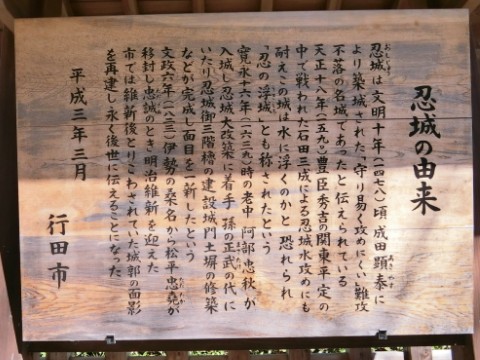 忍城の由来
忍城は文明十年(一四七八)頃 成田顕泰に
より築城された、「守り易く攻めにくい」難攻
不落の名城であったと伝えられている
天正十八年(一五九〇)豊臣秀吉の関東平定の
中で戦われた石田三成による忍城水攻めにも
耐えこの城は水に浮くのかと 恐れられ
「忍の浮城」とも称されたという
寛永十六年(一六三九)時の老中 阿部忠秋が
入城し忍城大改築に着手 孫の正武の代に
いたり忍城御三階櫓の建設城門土塀の修築
などが完成し面目を一新したという
文政六年(一八二三)伊勢の桑名から松平忠堯が
移封し忠誠のとき明治維新を迎えた
市では維新後とりこわされていた城郭の面影
を再建し永く後世に伝えることになった
平成三年三月
行田市